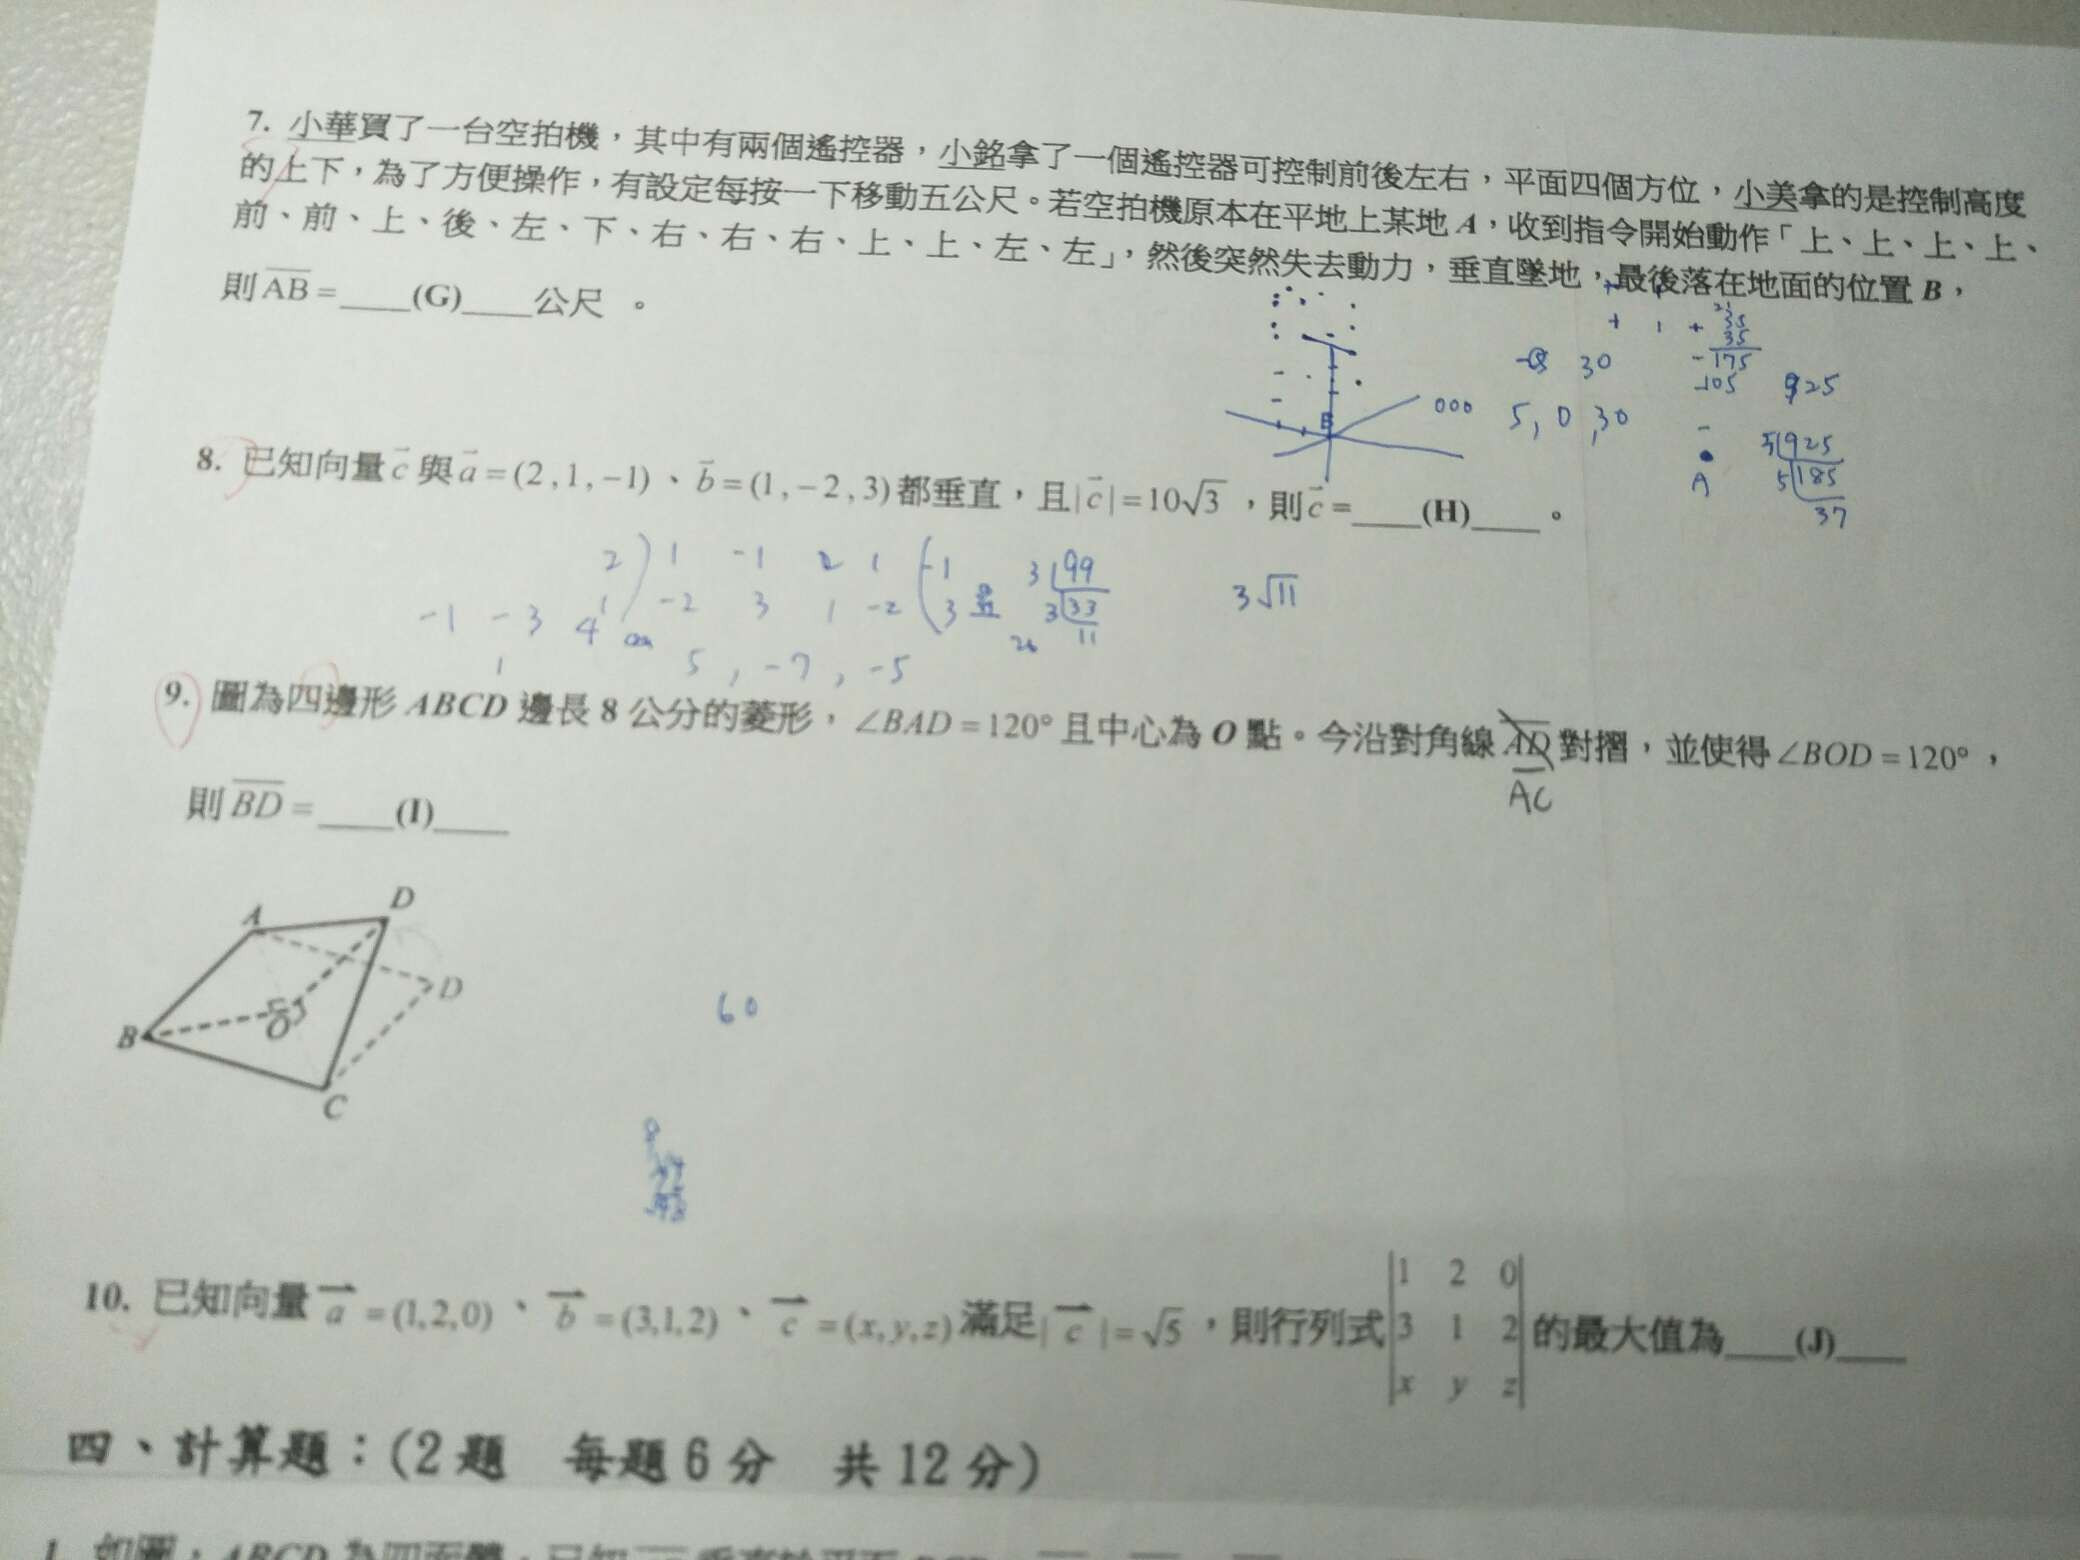 7. 小華買了一台空拍機，其中有兩個遙控器，小銘拿了一個遙控器可控制前後左右，平面四個方位，小美拿的是控制高度
的上下，為了方便操作，有設定每按一下移動五公尺。若空拍機原本在平地上某地 A，收到指令開始動作「上、上、上、上、
前、前、上、後、左、下、右、右、右、上、上、左、左」，然後突然失去動力，垂直墜地，最後落在地面的位置 B，
則 AB = ____(G)____公尺 。
35
35
175
-105
925
30
000
5, 0, 30
B
A
5 925
5 185
37
8. 已知向量 c 與 a = (2, 1, -1)、b = (1, -2, 3) 都垂直，且 |c| = 10√3，則 c = ____(H)____。
2 1 -1 2 1 -1
1 -2 3 1 -2 3
-1 -3 4
5, -7, -5
3 99
3 33
11
3√11
9. 圖為四邊形 ABCD 邊長 8 公分的菱形，∠BAD = 120° 且中心為 O 點。今沿對角線 AD 對摺，並使得 ∠BOD = 120°，
AC
則 BD = ____(I)____
A
D
D
B
O
C
60
8
10. 已知向量 a = (1, 2, 0)、b = (3, 1, 2)、c = (x, y, z) 滿足 |c| = √5，則行列式 |1 2 0| |3 1 2| |x y z| 的最大值為____(J)____
四、計算題：(2 題 每題 6 分 共 12 分)
1. 如圖，ABCD 為四面體，已知